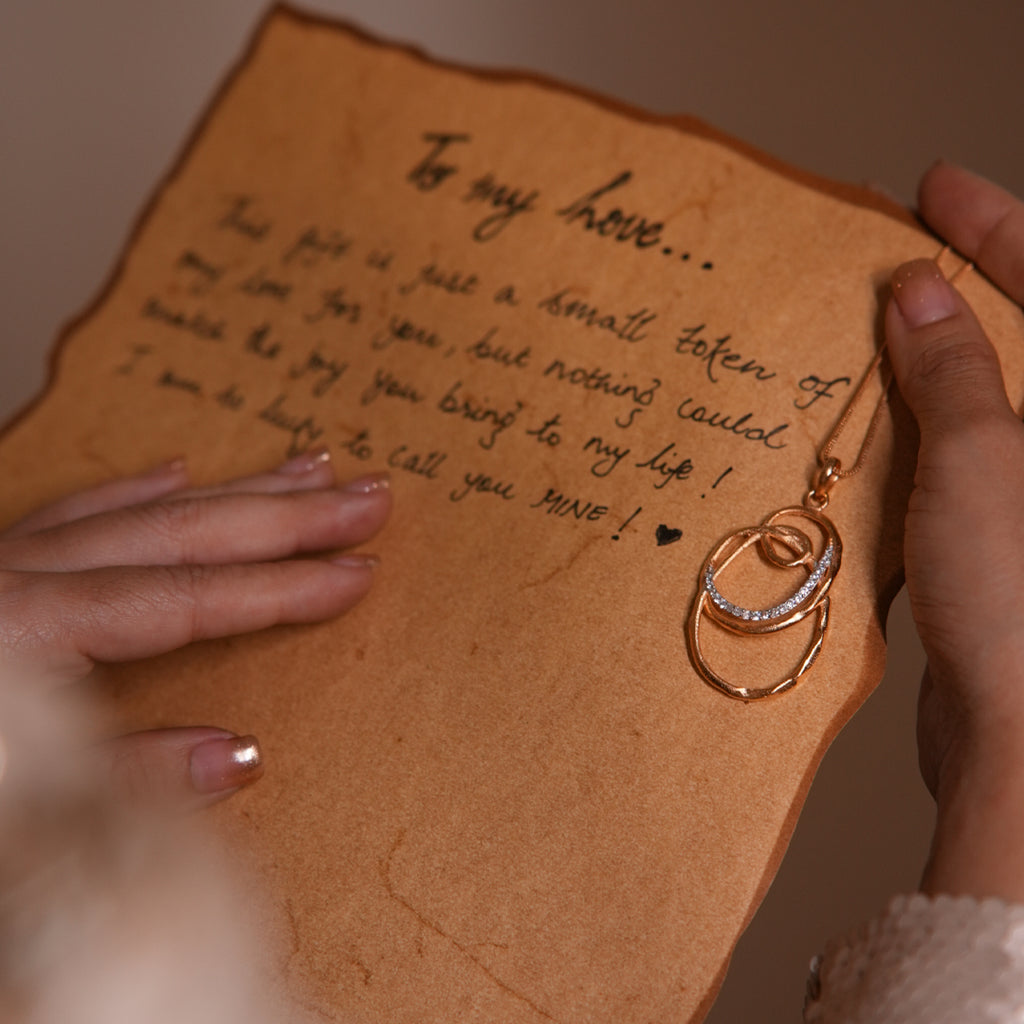 To my love...
This gift is just a small token of
my love for you, but nothing could
the joy you bring to my life!
I am so lucky to call you MINE! ♥